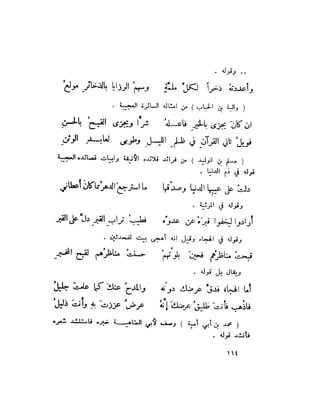 .. وقوله .
وأعددته ذخراً لكل ملمّةٍ وسهمُ الرزايا بالذخائر مولعُ
( والبة بن الحباب ) من امثاله السائرة العجيبة .
ان كان يجزى بالخير فاعله شرًا ويجزى القبيح بالحسن
فويل تالي القرآن في ظلم الليل وطوبى لعابد الوثن
( مسلم بن الوليد ) من فرائد قلائده الأنيقة وابيات قصائده العجيبة
قوله في ذم الدنيا .
دلت على عيبها الدنيا وصدّقها ما استرجع الدهر مما كان أعطاني
وقوله في المرثية .
أرادوا ليخفوا قبرَهُ عن عدوّه فطيبُ تراب القبر دلّ على القبر
وقوله في الهجاء وقيل انه أهجى بيت للمحدثين .
قبحتْ مناظرُهم فحين بلوتُهمْ حسنتْ مناظرُهم لقبح المخبر
ويقال بل قوله .
أما الهجاء فدقّ عرضك دونه والمدح عنك كما علمت جليلُ
فاذهب فأنت طليق عرضك إنّهُ عرضٌ عززتَ بهِ وأنتَ ذليلُ
( محمد بن أبي أمية ) وصف لأبي العتاهيـة خبره فاستنشد شعره
فأنشد قوله .
١١٤